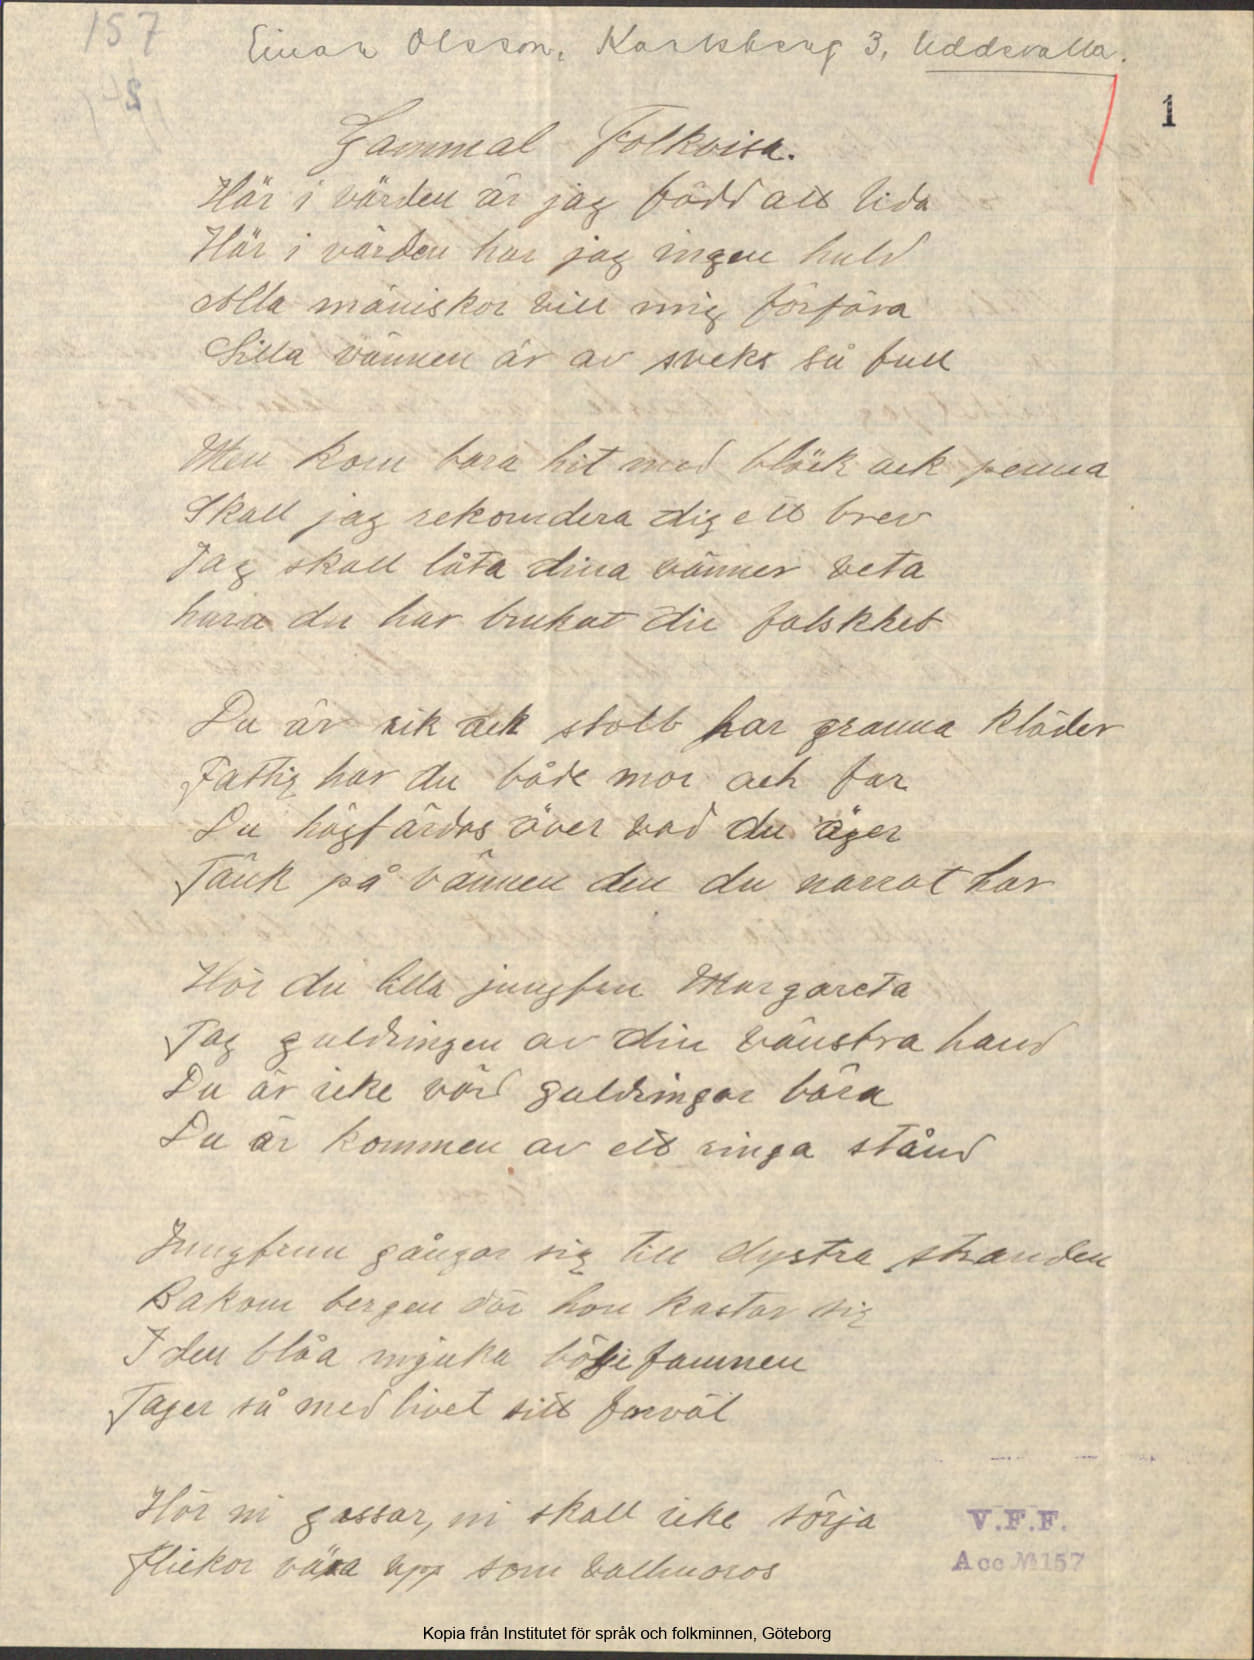 157
Einar Olsson, Karlsberg 3, Uddevalla.
1
Gammal Folkvisa.
Här i värden är jag född att lida
Här i värden har jag ingen huld
Alla mäniskor vill mig förföra
Lilla vännen är av sveks så full
Men kom bara hit med bläck ack penna
Skall jag rekomdera dig ett brev
Jag skall låta dina vänner veta
hura du har brukat din falskhet
Du är rik ack stolt har granna kläder
Fattig har du både mor ach far
Du högfärdas över vad du äger
Tänk på vännen den du narrat har
Hör du lilla jungfru Margareta
Tag guldringen av din vänstra hand
Du är icke värd guldringar bära
Du är kommen av ett ringa stånd
Jungfrun gångar sig till dystra stranden
Bakom bergen där hon kastar sig
I den blåa mjuka böljefamnen
Tager så med livet sitt farväl
Hör ni gossar, ni skall icke sörja
flickor växa upp som vallmoros
V.F.F.
Acc № 157
Kopia från Institutet för språk och folkminnen, Göteborg